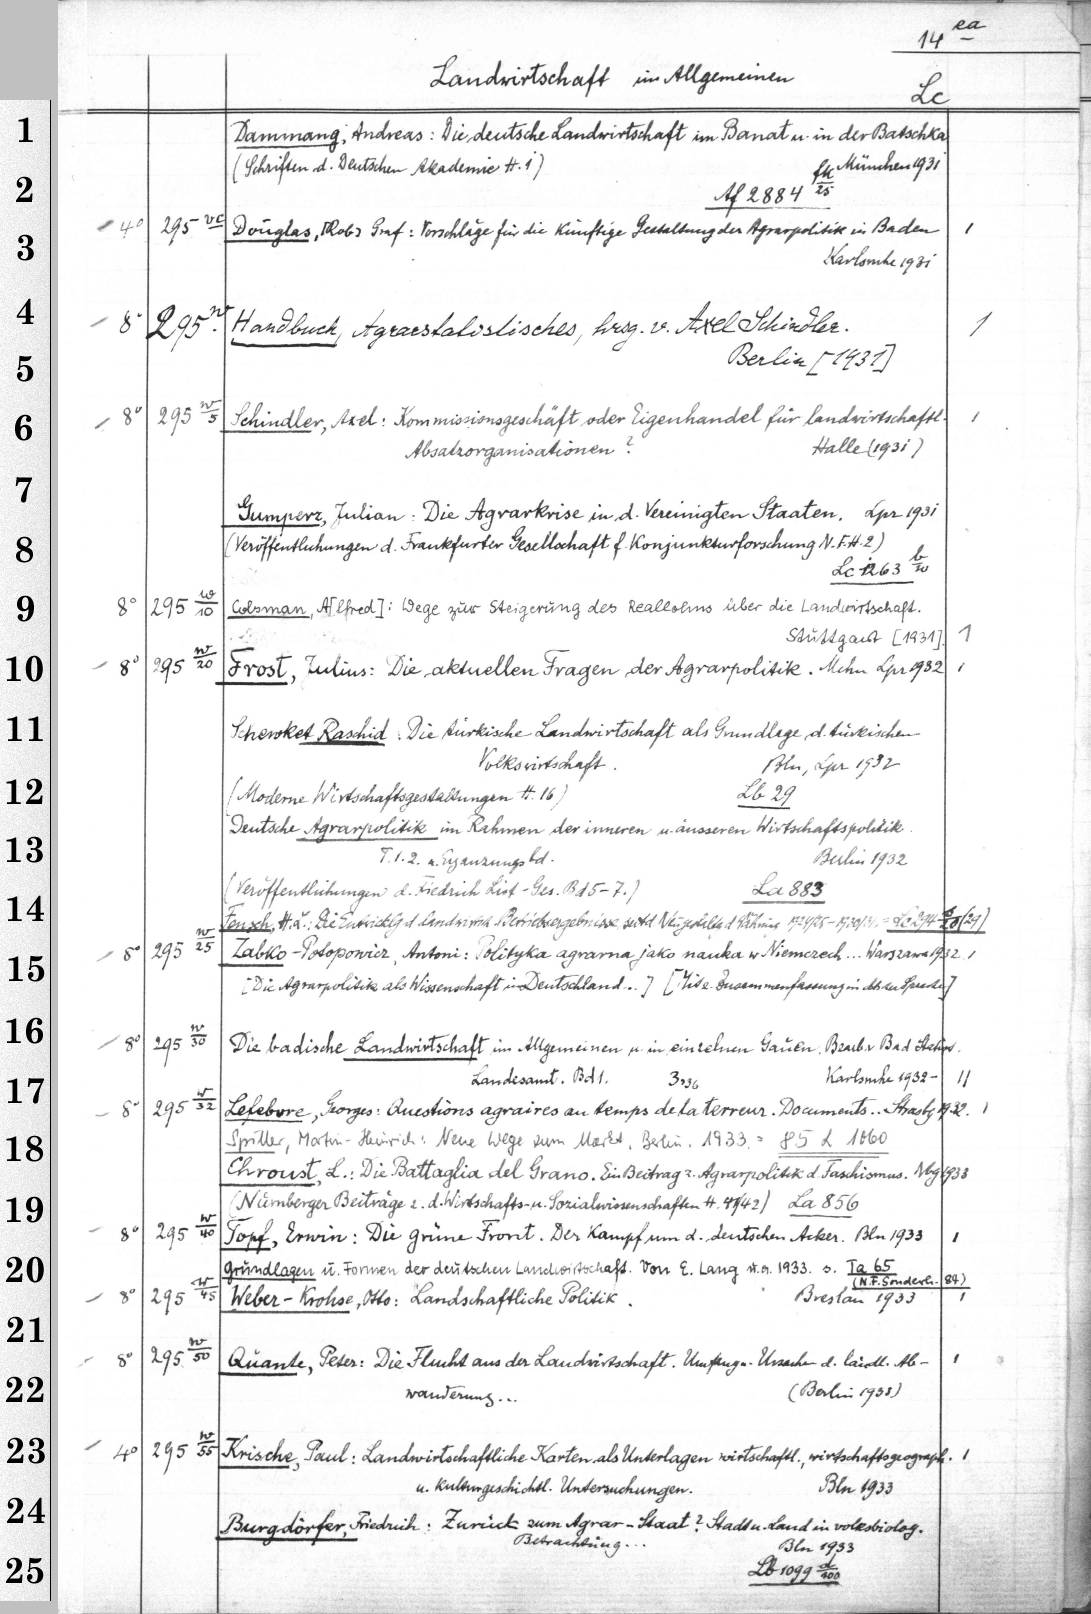 14 ea
Landwirtschaft im Allgemeinen
Lc
1 Dammang, Andreas: Die deutsche Landwirtschaft im Banat u. in der Batschka
(Schriften d. Deutschen Akademie H. 1) München 1931
2 Af 2884 fk/25
4° 295 vc Douglas, [Rob] Graf: Vorschläge für die künftige Gestaltung der Agrarpolitik in Baden 1
3 Karlsruhe 1931
4 8° 295 w Handbuch, Agrarstatistisches, hrsg. v. Axel Schindler. 1
5 Berlin [1931]
6 8° 295 w/5 Schindler, Axel: Kommissionsgeschäft oder Eigenhandel für landwirtschaftl. 1
Absatzorganisationen? Halle (1931)
7
Gumperz, Julian: Die Agrarkrise in d. Vereinigten Staaten. Lpz 1931
8 (Veröffentlichungen d. Frankfurter Gesellschaft f. Konjunkturforschung N.F.H.2)
Lc 1263 b/50
9 8° 295 w/10 Colsman, A[lfred]: Wege zur Steigerung des Reallohns über die Landwirtschaft.
Stuttgart [1931]. 1
10 8° 295 w/20 Frost, Julius: Die aktuellen Fragen der Agrarpolitik. Mchn Lpz 1932 1
11 Schewket Raschid: Die türkische Landwirtschaft als Grundlage d. türkischen
Volkswirtschaft. Bln, Lpz 1932
12 (Moderne Wirtschaftsgestaltungen H. 16) Lb 29
Deutsche Agrarpolitik im Rahmen der inneren u. äusseren Wirtschaftspolitik.
13 T. 1. 2. u. Ergänzungsbd. Berlin 1932
(Veröffentlichungen d. Friedrich List-Ges. Bd 5-7.) La 883
14 Fensch, H. L.: Die Entwicklg d. landwirtsch. Betriebsergebnisse seit d.
8° 295 w/25 Zabko-Potopowicz, Antoni: Polityka agrarna jako nauka w Niemczech... Warszawa 1932. 1
15 [Die Agrarpolitik als Wissenschaft in Deutschland..] [Mit e. Zusammenfassung in dtscher Sprache]
16 8° 295 w/30 Die badische Landwirtschaft im Allgemeinen u. in einzelnen Gauen. Bearb. v. Bad. Statist.
17 Landesamt. Bd 1. 3 1936 Karlsruhe 1932- 11
8° 295 w/32 Lefebvre, Georges: Questions agraires au temps de la terreur. Documents.. Strasbg 1932. 1
18 Spiller, Martin-Heinrich: Neue Wege zum Markt. Berlin. 1933. = 85 L 1060
Chroust, L.: Die Battaglia del Grano. Ein Beitrag z. Agrarpolitik d. Faschismus. Nbg 1933
19 (Nürnberger Beiträge z. d. Wirtschafts- u. Sozialwissenschaften H. 41/42) La 856
8° 295 w/40 Topf, Erwin: Die grüne Front. Der Kampf um d. deutschen Acker. Bln 1933 1
20 Grundlagen u. Formen der deutschen Landwirtschaft. Von E. Lang u.a. 1933. s. Ia 65
(N.F. Sonderh. 84)
8° 295 w/45 Weber-Krohse, Otto: Landschaftliche Politik. Breslau 1933 1
21
8° 295 w/50 Quante, Peter: Die Flucht aus der Landwirtschaft. Umfang u. Ursachen d. ländl. Ab- 1
22 wanderung... (Berlin 1933)
23 4° 295 w/55 Krische, Paul: Landwirtschaftliche Karten als Unterlagen wirtschaftl., wirtschaftsgeograph. 1
u. kulturgeschichtl. Untersuchungen. Bln 1933
24 Burgdörfer, Friedrich: Zurück zum Agrar-Staat? Stadt u. Land in volksbiolog.
Betrachtung... Bln 1933
25 Lb 1099 d/100